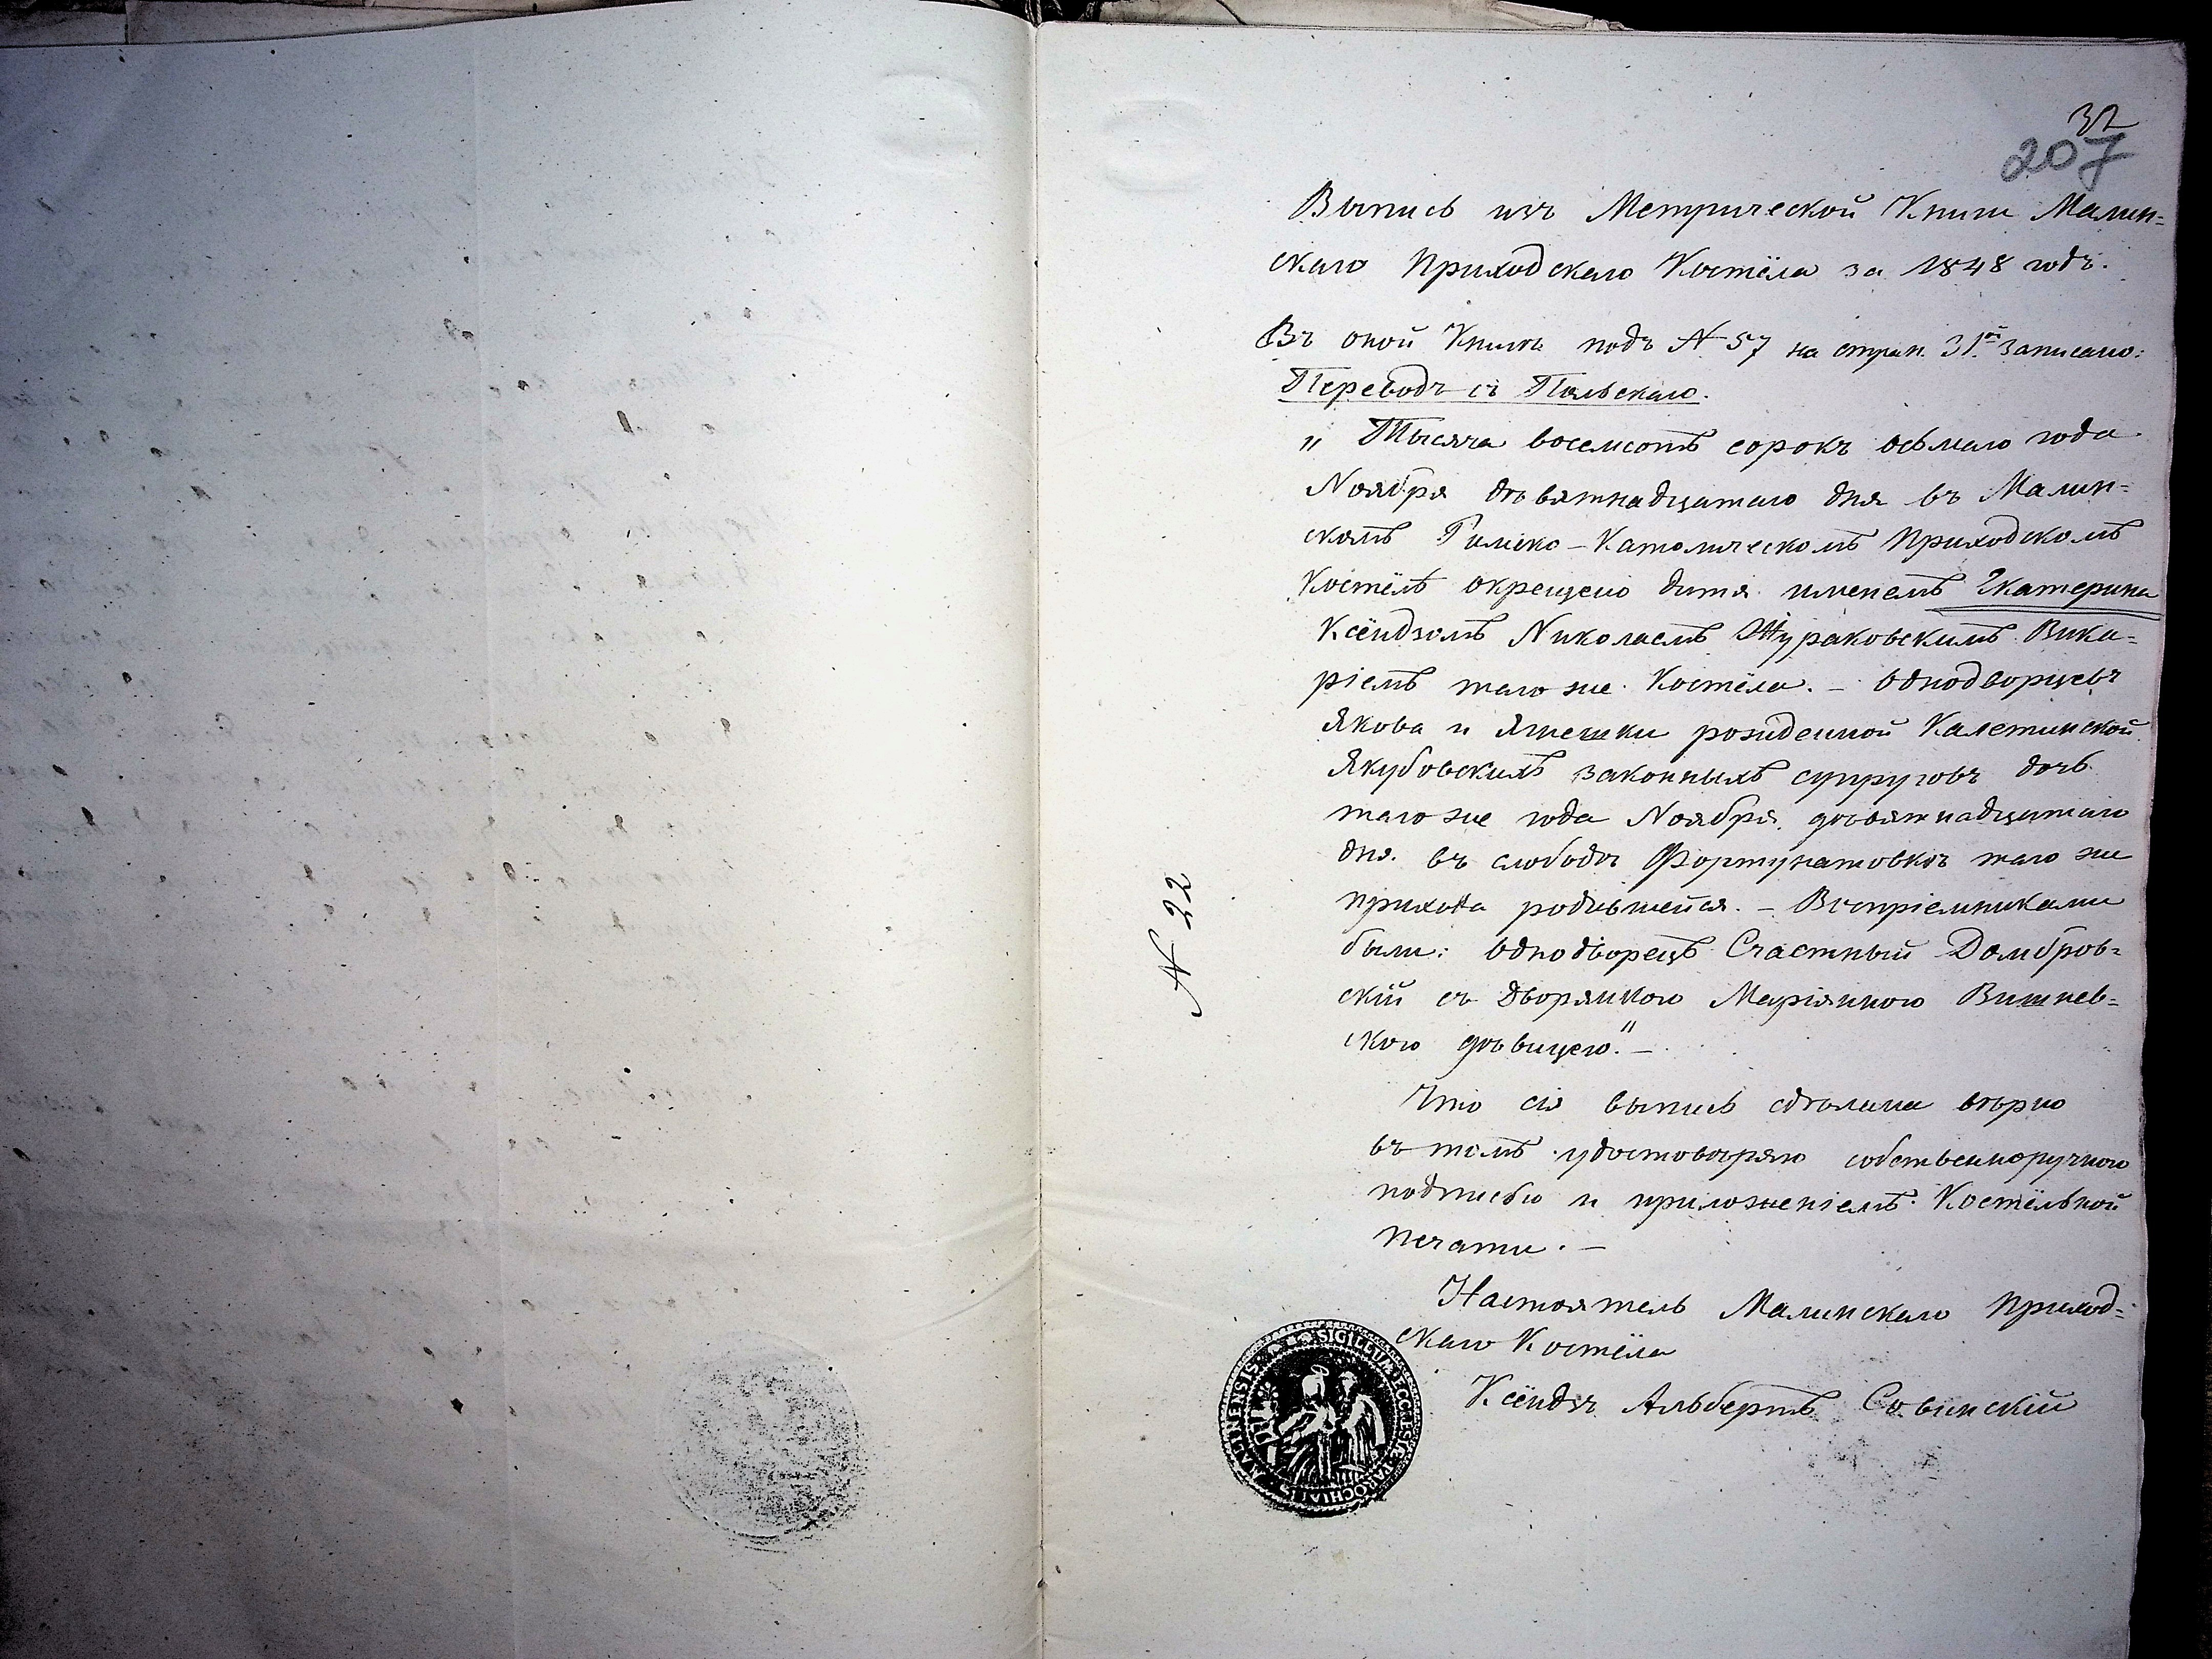 32
207
Выпись изъ Метрической Книги Малин=
скаго Приходскаго Костёла за 1848 годъ.
Въ оной Книгѣ подъ № 57 на стран. 31ой записано:
Переводъ съ Польскаго.
„ Тысяча восемсотъ сорокъ осьмаго года
Ноября девятнадцатаго дня въ Малин=
скомъ Римско-Католическомъ Приходскомъ
Костёлѣ окрещено дитя именемъ Екатерина
Ксёндзомъ Николаемъ Жураковскимъ Вика=
ріемъ того же Костёла. – Однодворцевъ
Якова и Ягнешки рожденной Калетинской
Якубовскихъ законныхъ супруговъ дочь
того же года Ноября девятнадцатаго
дня въ слободѣ Фортунатовкѣ того же
прихода родившейся. – Воспріемниками
были: Однодворецъ Счастный Домбров=
скій съ Дворянкою Маріянною Вишнев=
скою дѣвицею." –
Что сія выпись сдѣлана вѣрно
въ томъ удостовѣряю собственноручною
подписью и приложеніемъ Костёльной
печати. –
Настоятель Малинскаго Приход=
скаго Костёла
Ксёндзъ Альбертъ Совинскій
№ 22
SIGILLUM ECCLESIAE PAROCHIALIS MALINENSIS